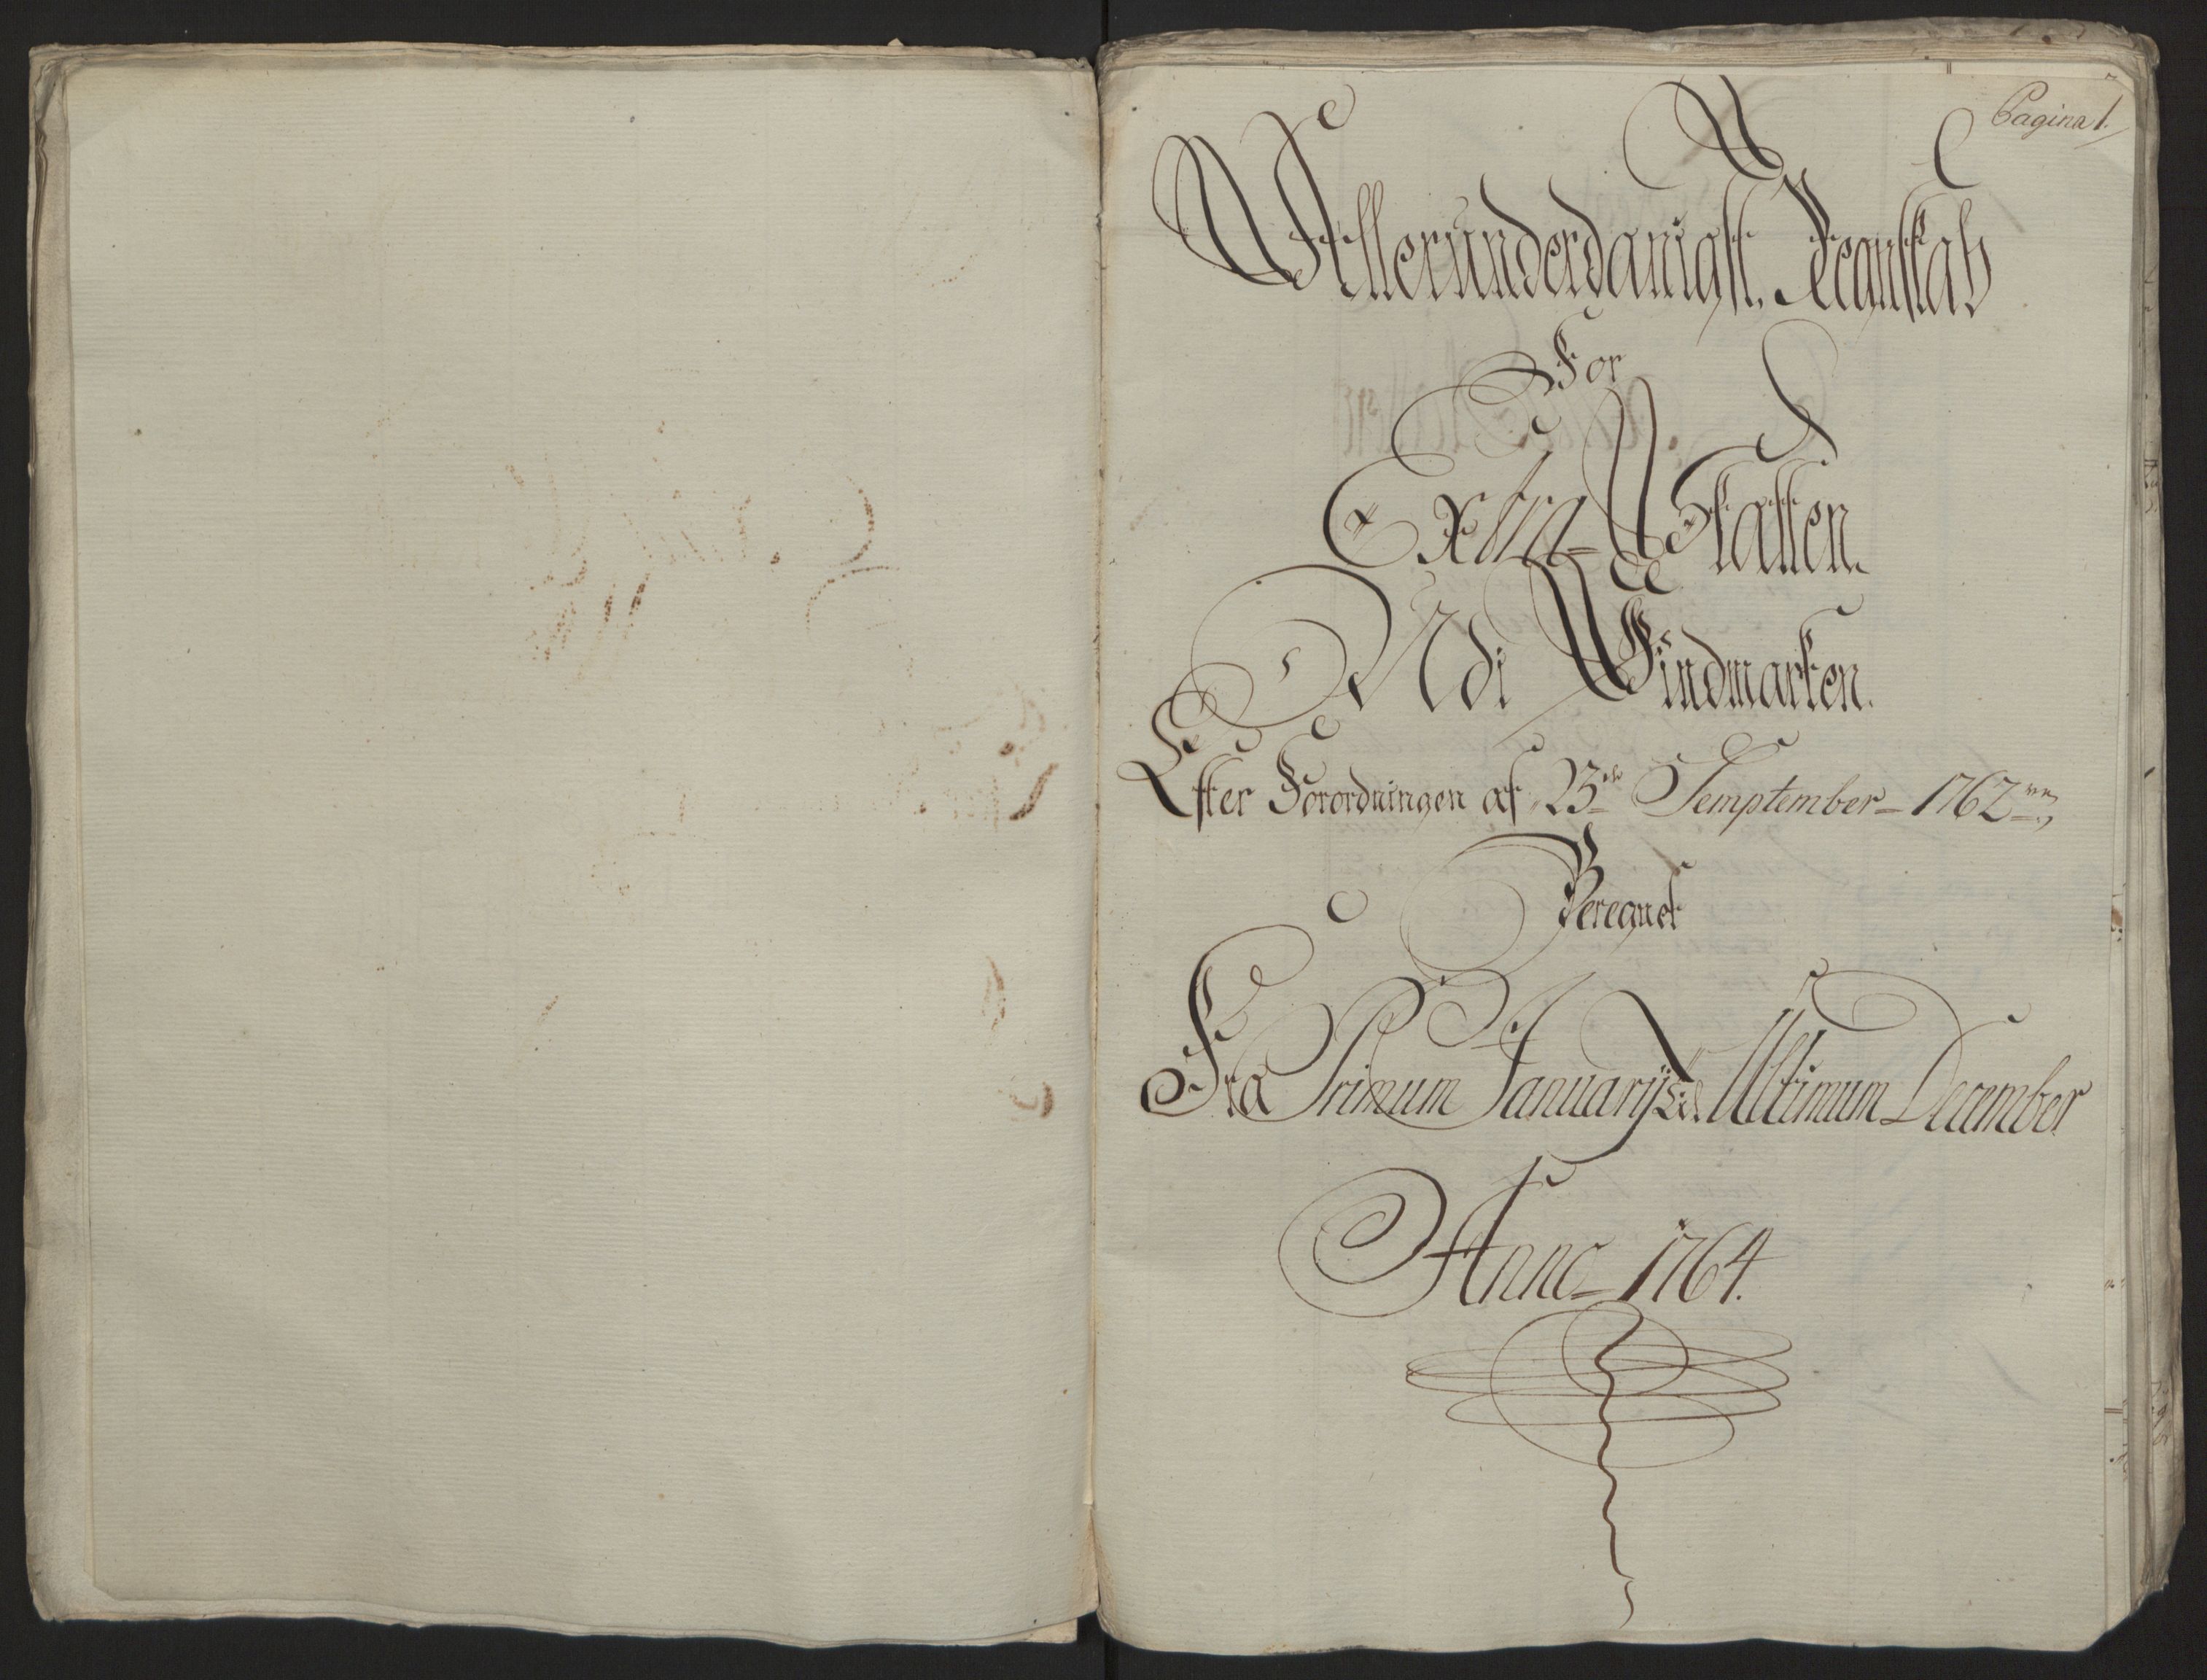 Pagina 1.
Allerunderdanigst. Regnskab
For
Extra-Skatten.
Udi Findmarken.
Efter Forordningen af 23de Semptember 1762
Beregnet
Fra Primum Januarÿ Ultimum December
Anno 1764.